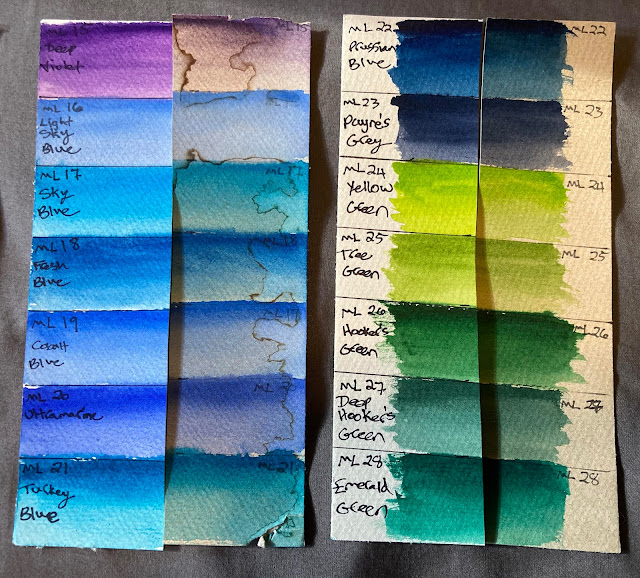 ML 15
Deep
Violet
ML15
ML 16
Light
Sky
Blue
ML 17
Sky
Blue
ML 17
ML 18
Fresh
Blue
ML 18
ML 19
Cobalt
Blue
ML 19
ML 20
Ultramarine
ML 21
Turkey
Blue
ML 21
ML 22
Prussian
Blue
ML22
ML 23
Payne's
Grey
ML 23
ML 24
Yellow
Green
ML 24
ML 25
Tree
Green
ML 25
ML 26
Hooker's
Green
ML 26
ML 27
Deep
Hooker's
Green
ML 27
ML 28
Emerald
Green
ML 28